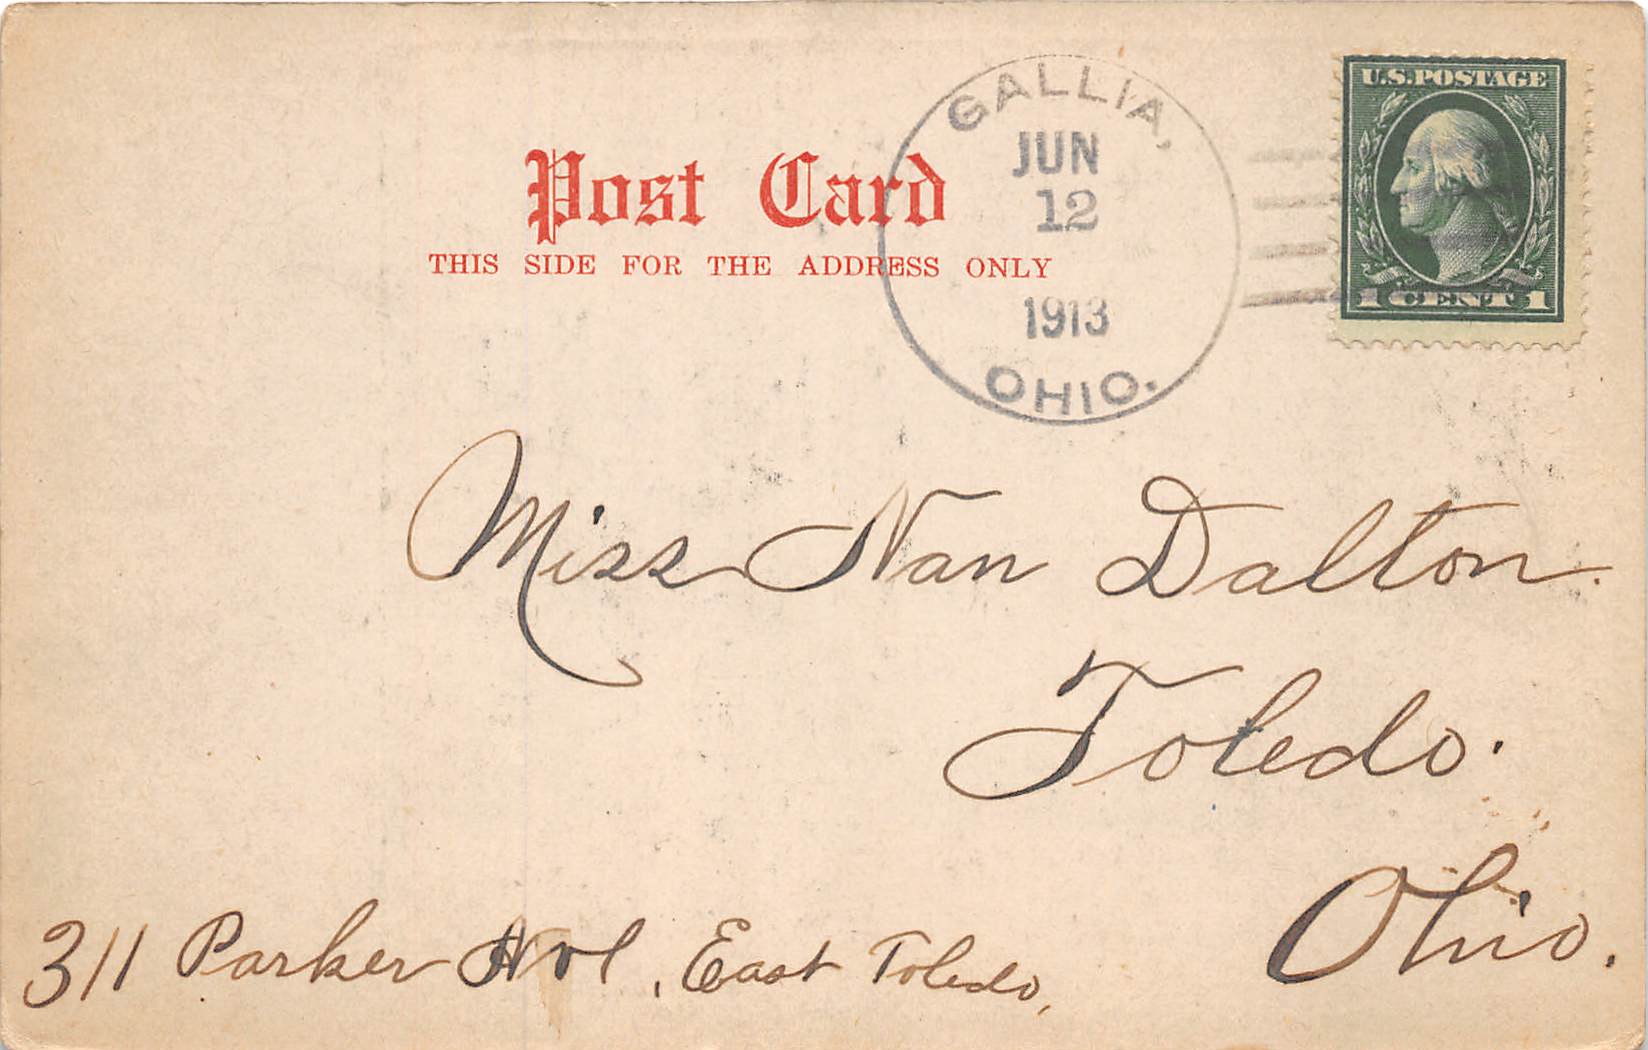 U.S.POSTAGE
1 CENT 1
GALLIA,
JUN
12
1913
OHIO.
Post Card
THIS SIDE FOR THE ADDRESS ONLY
Miss Nan Dalton.
Toledo.
Ohio.
311 Parker , East Toledo,